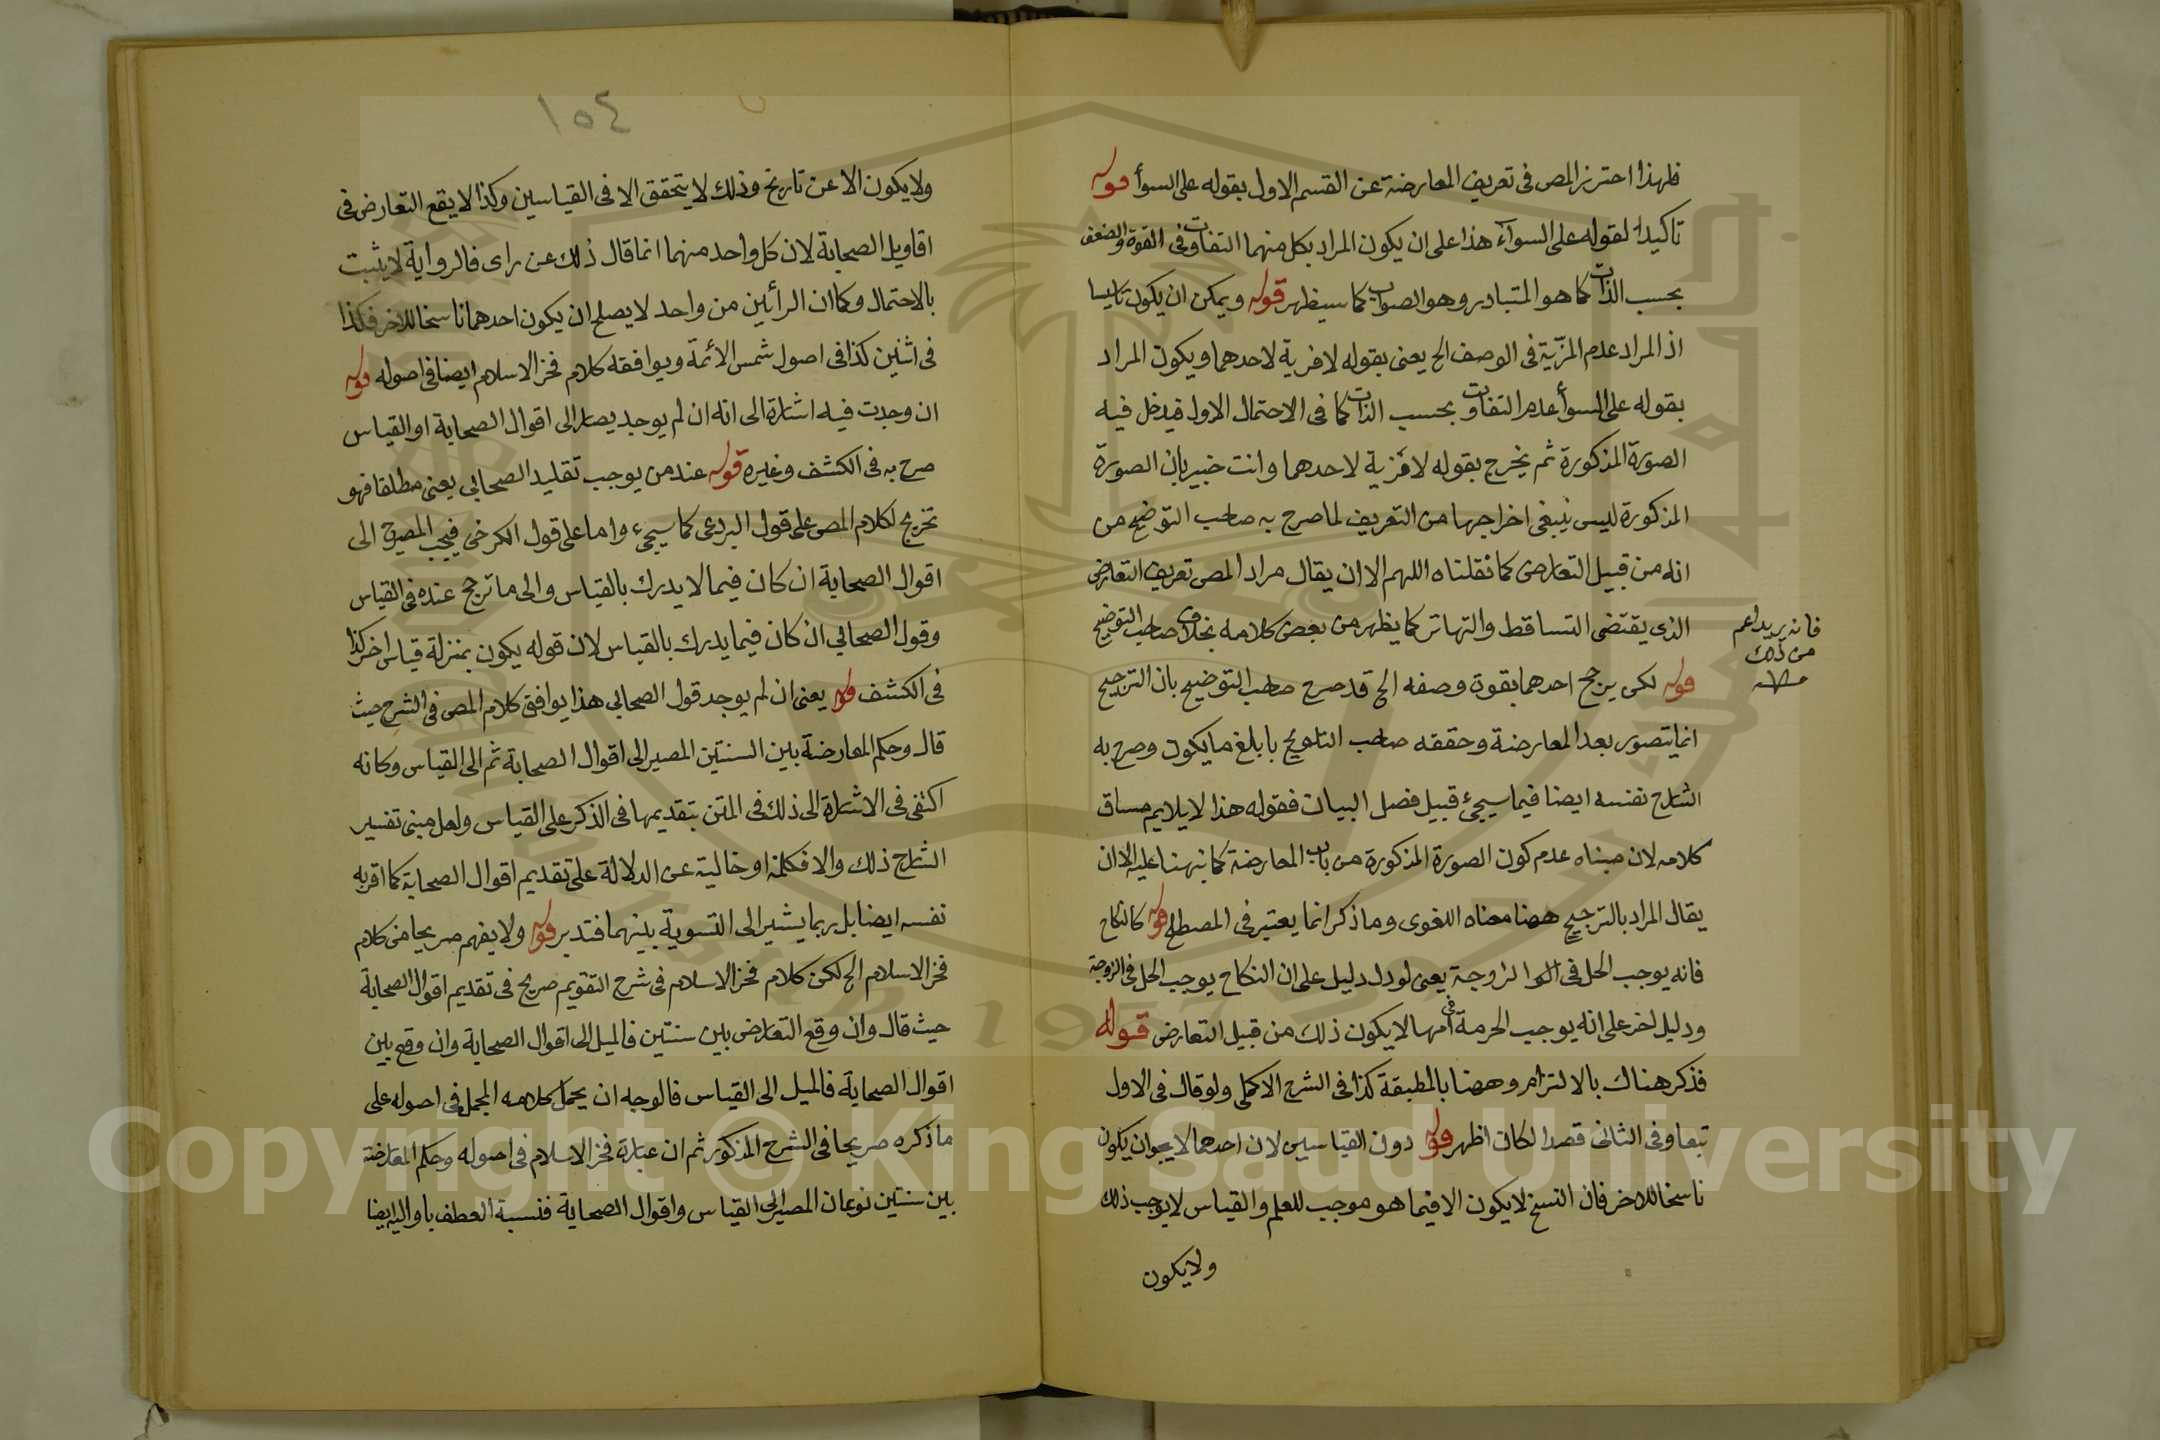 فلهذا احترز المص فى تعريف المعارضة عن القسم الاول بقوله على السوأ قوله
تاكيدا لقوله على السوآء هذا على ان يكون المراد بكل منهما التفاوت فى القوة والضعف
بحسب الذات كما هو المتبادر وهو الصواب كما سيظهر قوله ويمكن ان يكون تاسيسا
اذ المراد عدم المزية فى الوصف الخ يعنى بقوله لا مزية لاحدهما ويكون المراد
بقوله على السوأ عدم التفاوت بحسب الذات كما فى الاحتمال الاول فيدخل فيه
الصورة المذكورة ثم يخرج بقوله لا مزية لاحدهما وانت خبير بان الصورة
المذكورة ليس ينبغى اخراجها من التعريف لما صرح به صاحب التوضيح من
انه من قبيل التعارض كما نقلناه اللهم الا ان يقال مراد المص تعريف التعارض
الذى يقتضى التساقط والتهاتر كما يظهر من بعض كلامه بخلاف صاحب التوضيح
فانه يريد اعم
من ذلك
قوله لكى يرجح احدهما بقوة وصفه الخ قد صرح صاحب التوضيح بان الترجيح
انما يتصور بعد المعارضة وحققه صاحب التلويح بابلغ ما يكون وصرح به
الشارح نفسه ايضا فيما سيجئ قبيل فصل البيان فقوله هذا لا يلايم مساق
كلامه لان مبناه عدم كون الصورة المذكورة من باب المعارضة كما نبهنا عليه الا ان
يقال المراد بالترجيح ههنا معناه اللغوى وما ذكر انما يعتبر فى المصطلح قوله كالنكاح
فانه يوجب الحل فى الزوجة يعنى لو دل دليل على ان النكاح يوجب الحل فى الزوجة
ودليل اخر على انه يوجب الحرمة فى امها لا يكون ذلك من قبيل التعارض قوله
فذكر هناك بالالتزام وههنا بالمطبقة كذا فى الشرح الاكملى ولو قال فى الاول
تبعا وفى الثانى قصدا لكان اظهر قوله دون القياسين لان احدهما لا يجوز ان يكون
ناسخا للاخر فان النسخ لا يكون الا فيما هو موجب للعلم والقياس لا يوجب ذلك
ولا يكون
١٥٤
ولا يكون الا عن تاريخ وذلك لا يتحقق الا فى القياسين وكذا لا يقع التعارض فى
اقاويل الصحابة لان كل واحد منهما انما قال ذلك عن راى فالرواية لا يثبت
بالاحتمال وكما ان الرأئين من واحد لا يصلح ان يكون احدهما ناسخا للاخر فكذا
فى اثنين كذا فى اصول شمس الأئمة ويوافقه كلام فخر الاسلام ايضا فى اصوله قوله
ان وجدت فيه اشارة الى انه ان لم يوجد يصار الى اقوال الصحابة او القياس
صرح به فى الكشف وغيره قوله عند من يوجب تقليد الصحابي يعنى مطلقا فهو
تخريج لكلام المص على قول البردعى كما سيجىء واما على قول الكرخى فيجب المصير الى
اقوال الصحابة ان كان فيما لا يدرك بالقياس والى ما ترجح عنده فى القياس
وقول الصحابي ان كان فيما يدرك بالقياس لان قوله يكون بمنزلة قياس اخر كذا
فى الكشف قوله يعنى ان لم يوجد قول الصحابي هذا يوافق كلام المص فى الشرح حيث
قال وحكم المعارضة بين السنتين المصير الى اقوال الصحابة ثم الى القياس وكانه
اكتفى فى الاشارة الى ذلك فى المتن بتقديمها فى الذكر على القياس ولعل مبنى تفسير
الشارح ذلك والا فكلمة او خالية عن الدلالة على تقديم اقوال الصحابة كما اقر به
نفسه ايضا بل ربما يشير الى التسوية بينهما فتدبر قوله ولا يفهم صريحا من كلام
فخر الاسلام الخ لكن كلام فخر الاسلام فى شرح التقويم صريح فى تقديم اقوال الصحابة
حيث قال وان وقع التعارض بين سنتين فالميل الى اقوال الصحابة وان وقع بين
اقوال الصحابة فالميل الى القياس فالوجه ان يحمل كلامه المجمل فى اصوله على
ما ذكره صريحا فى الشرح المذكور ثم ان عبارة فخر الاسلام فى اصوله وحكم المعارضة
بين سنتين نوعان المصير الى القياس واقوال الصحابة فنسبة العطف باو اليه ايضا
Copyright © King Saud University